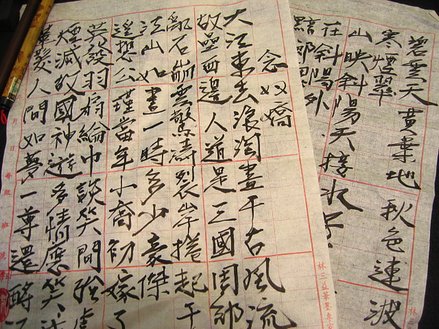 碧雲天黃葉地秋色連波
寒煙翠
山映斜陽天接水
在斜陽外
黯鄉
念奴嬌
大江東去浪淘盡千古風流
故壘西邊人道是三國周郎
亂石崩雲驚濤裂岸捲起千
江山如畫一時多少豪傑
遙想公瑾當年小喬初嫁了
英發羽扇綸巾談笑間強虜
煙滅故國神遊多情應笑
華髮人間如夢一尊還酹江
林三益筆墨專家